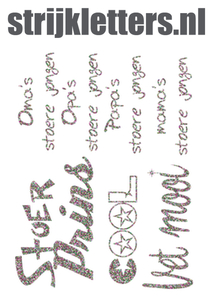 strijkletters.nl
Oma's
stoere jongen
Opa's
stoere jongen
Papa's
stoere jongen
mama's
stoere jongen
STOER
Prins
COOL
vet mooi